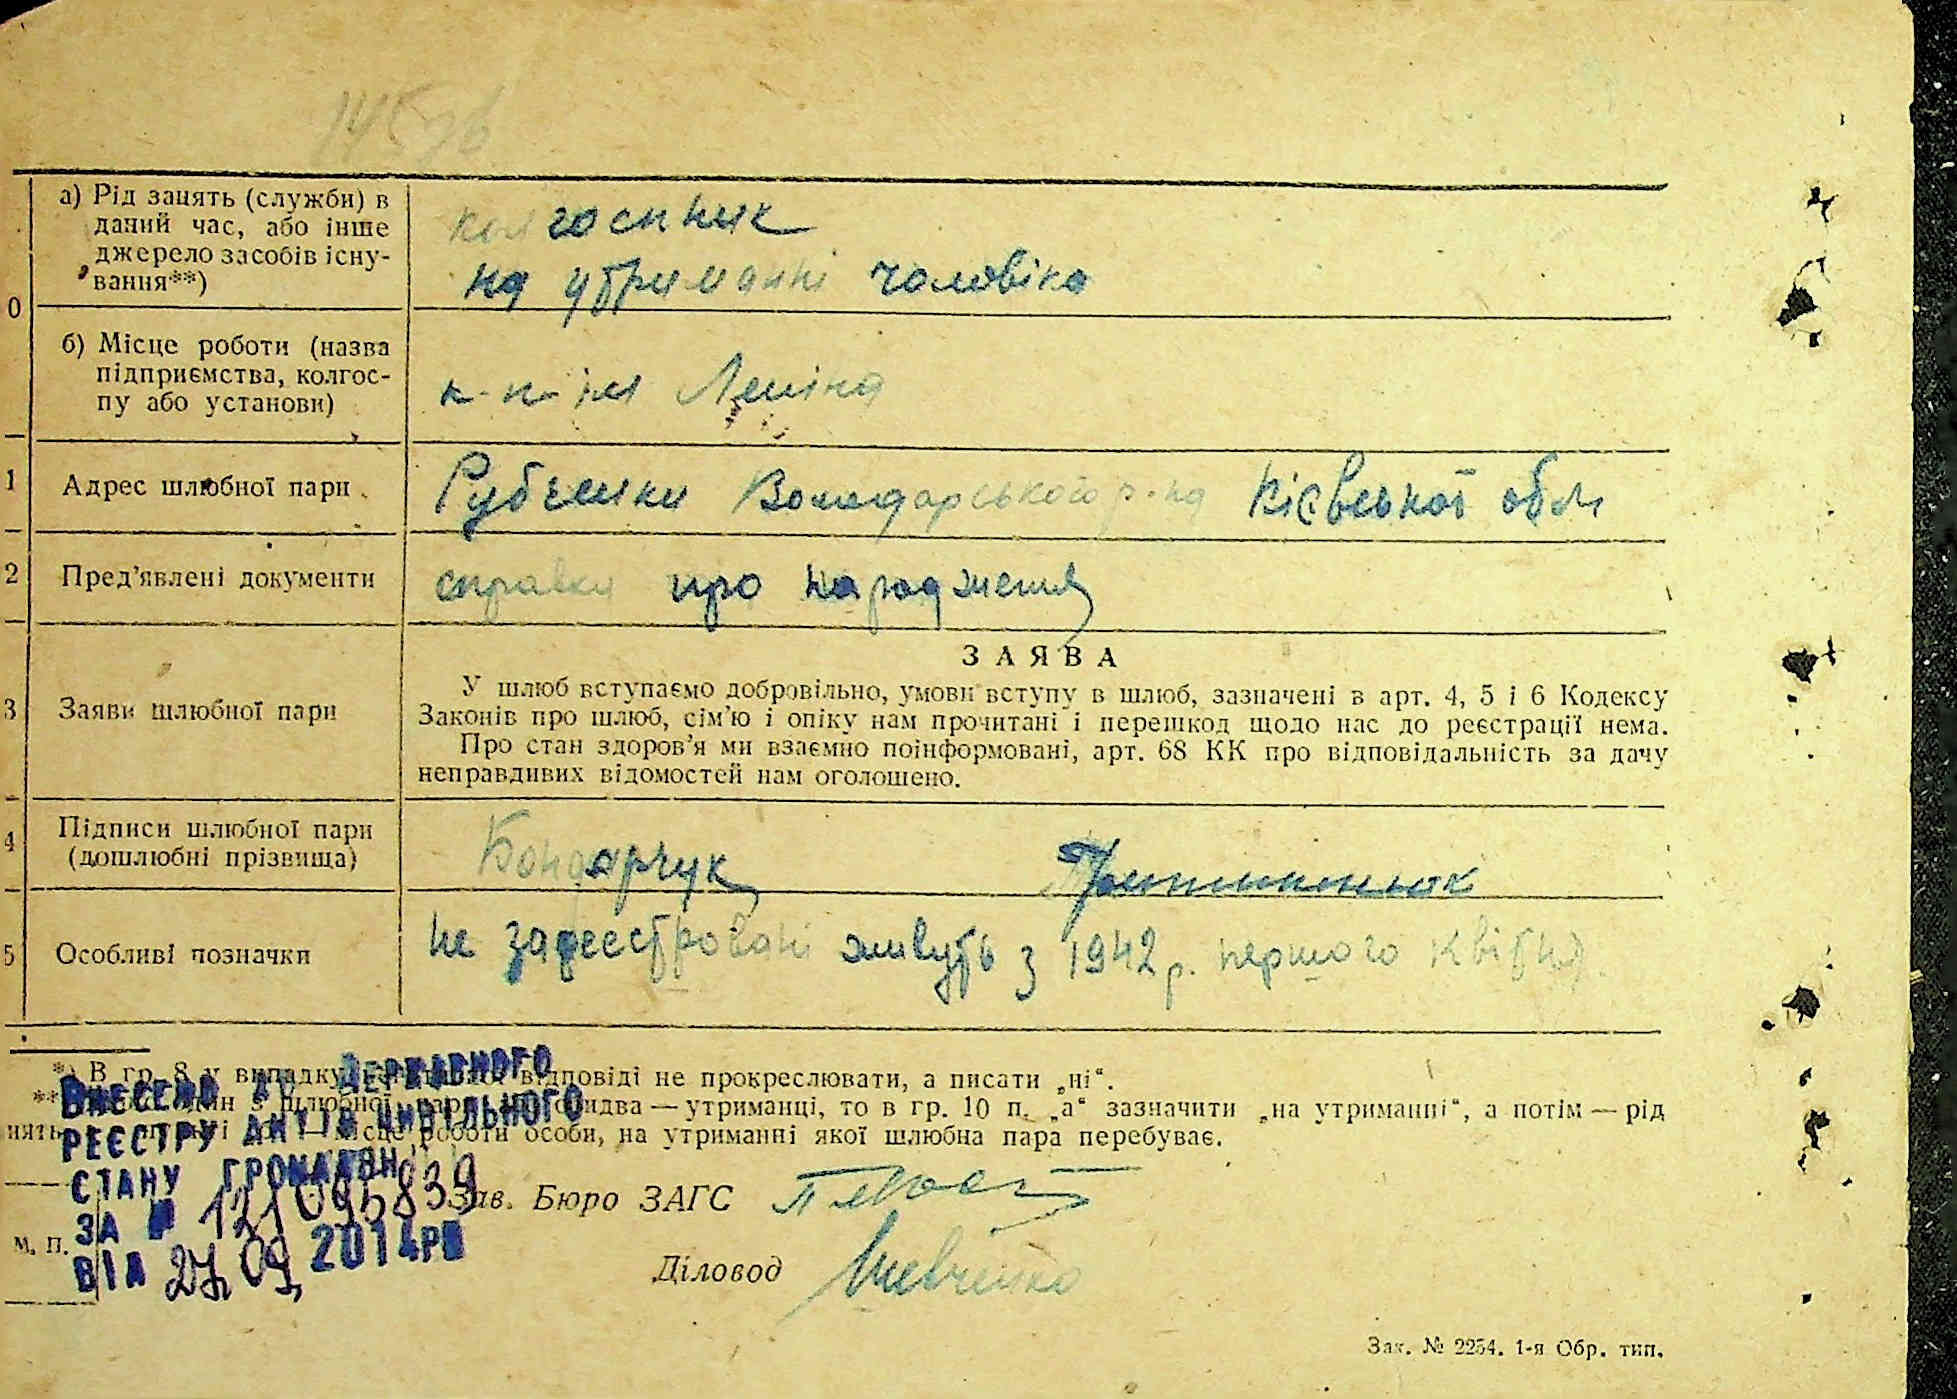 0
а) Рід занять (служби) в
даний час, або інше
джерело засобів існу-
вання**)
колгоспник
на утриманні чоловіка
б) Місце роботи (назва
підприємства, колгос-
пу або установи)
к-п ім Леніна
1
Адрес шлюбної пари
Рубченки Володарського р-на Київської обл
2
Пред’явлені документи
справки про народження
3
Заяви шлюбної пари
ЗАЯВА
У шлюб вступаємо добровільно, умови вступу в шлюб, зазначені в арт. 4, 5 і 6 Кодексу
Законів про шлюб, сім’ю і опіку нам прочитані і перешкод щодо нас до реєстрації нема.
Про стан здоров’я ми взаємно поінформовані, арт. 68 КК про відповідальність за дачу
неправдивих відомостей нам оголошено.
4
Підписи шлюбної пари
(дошлюбні прізвища)
Бондарчук
5
Особливі позначки
не зареєстровані живуть з 1942 р. першого квітня.
*) В гр. 8 у випадку відповіді не прокреслювати, а писати „ні“.
** з шлюбної — утриманці, то в гр. 10 п. „а“ зазначити „на утриманні“, а потім — рід
місце роботи особи, на утриманні якої шлюбна пара перебуває.
ВНЕСЕНО ДО ДЕРЖАВНОГО
РЕЄСТРУ АКТІВ ЦИВІЛЬНОГО
СТАНУ ГРОМАДЯН
ЗА №
ВІД 27 09 2014РО
Зав. Бюро ЗАГС
м. п.
Діловод Шевченко
Зак. № 2254. 1-я Обр. тип.